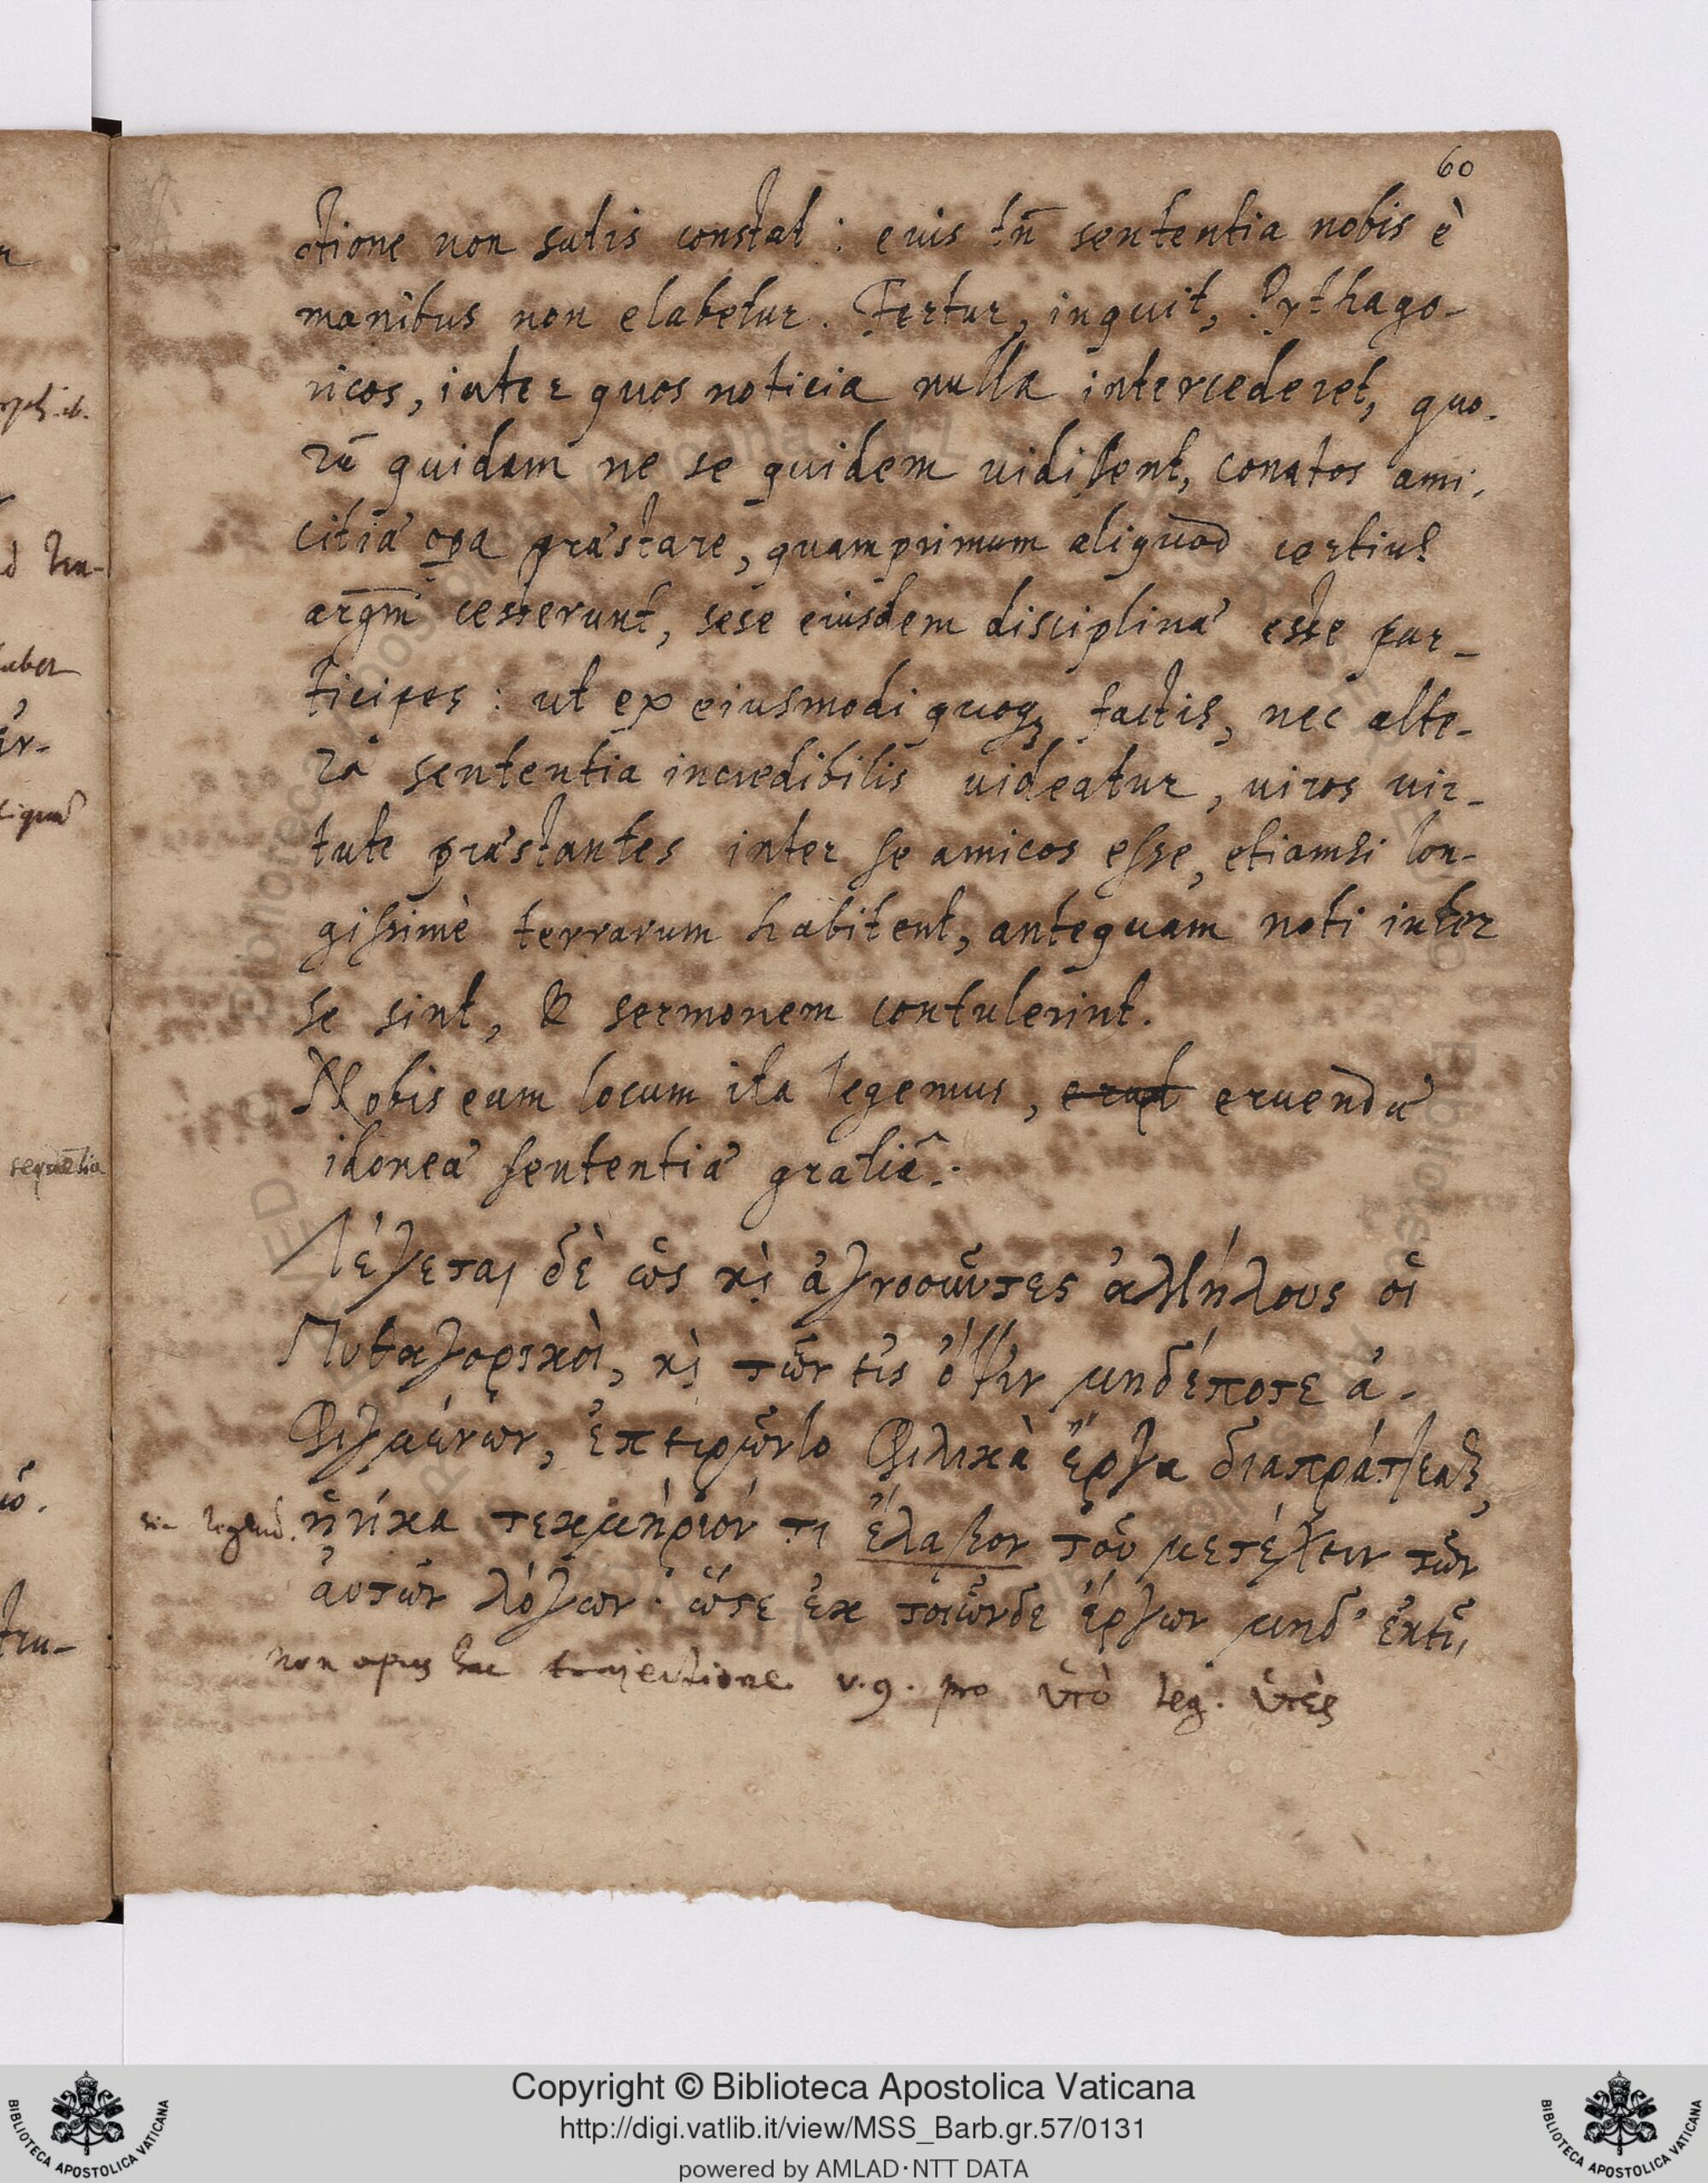 60
ctione non satis constat : eius tn̄ sententia nobis è
manibus non elabetur. Fertur, inquit, Pythago-
ricos, inter quos noticia nulla intercederet, quo-
rū quidam ne se quidem uidissent, conatos ami-
citiæ opa præstare, quamprimum aliquod certius
argm̄ cesserunt, sese eiusdem disciplinæ esse par-
ticipes : ut ex eiusmodi quoqꝫ factis, nec alte-
ra sententia incredibilis uideatur, uiros uir-
tute præstantes inter se amicos esse, etiamsi lon-
gissimè terrarum habitent, antequam noti inter
se sint, & sermonem contulerint.
Nobis eum locum ita legemus, eruendæ
idoneæ sententiæ gratiâ.
Λέγεται δὲ ὡς κὶ ἀγνοοῦντες ἀλλήλους οἱ
Πυθαγορικοὶ, κὶ τῶν εἰς ὄψιν μηδέποτε ἀ-
φιγμένων, ἐπειρῶντο φιλικὰ ἔργα διαπράττεσθαι,
sic legend. ἡνίκα τεκμήριόν τι ἔλαβον τοῦ μετέχειν τῶν
αὐτῶν λόγων· ὥστε ἐκ τοιῶνδε ἔργων μηδ' ἐκεῖ-
non opus hac traiectione v.g. pro ὑπὸ leg. ὑπὲρ
seqūētia
Copyright © Biblioteca Apostolica Vaticana
http://digi.vatlib.it/view/MSS_Barb.gr.57/0131
powered by AMLAD·NTT DATA
BIBLIOTECA APOSTOLICA VATICANA
BIBLIOTECA APOSTOLICA VATICANA